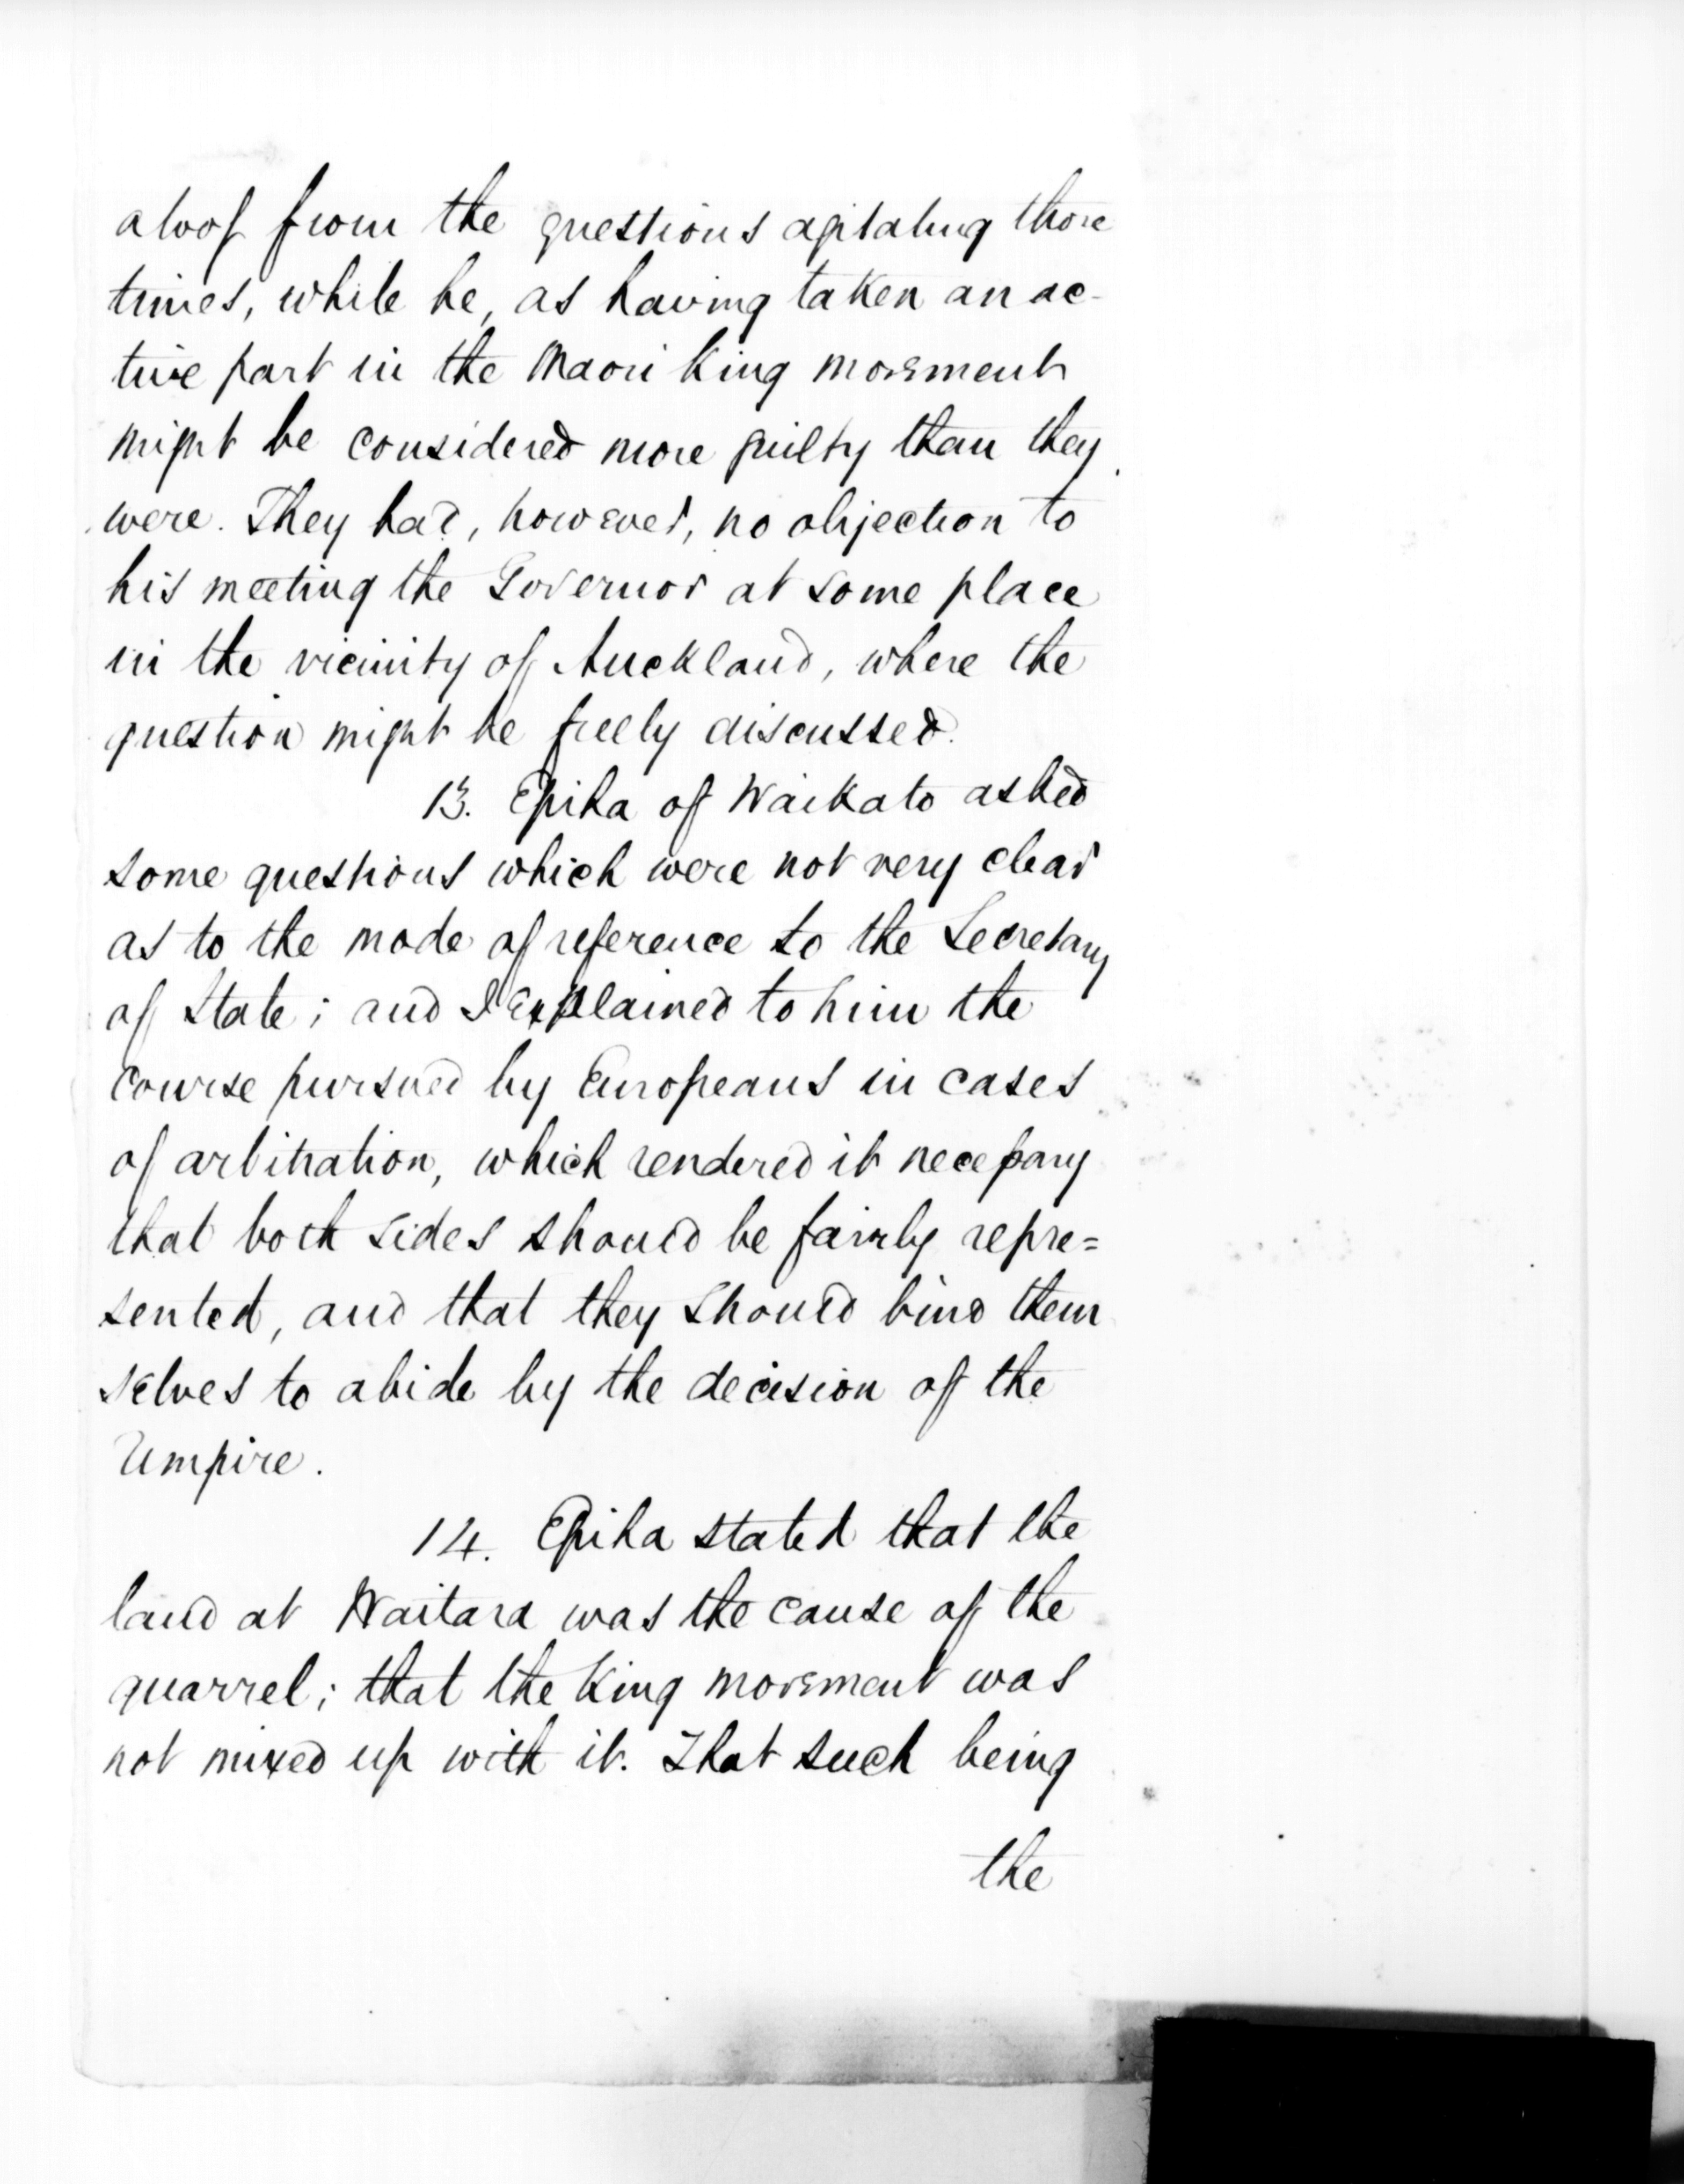 aloof from the questions agitating those
times, while he, as having taken an ac-
tive part in the Maori King movement
might be considered more guilty than they
were. They had, however, no objection to
his meeting the Governor at some place
in the vicinity of Auckland, where the
question might be freely discussed.
13. Epiha of Waikato asked
some questions which were not very clear
as to the mode of reference to the Secretary
of State; and I explained to him the
course pursued by Europeans in cases
of arbitration, which rendered it necessary
that both sides should be fairly repre=
sented, and that they should bind them
selves to abide by the decision of the
Umpire.
14. Epiha stated that the
land at Waitara was the cause of the
quarrel; that the King movement was
not mixed up with it. That such being
the